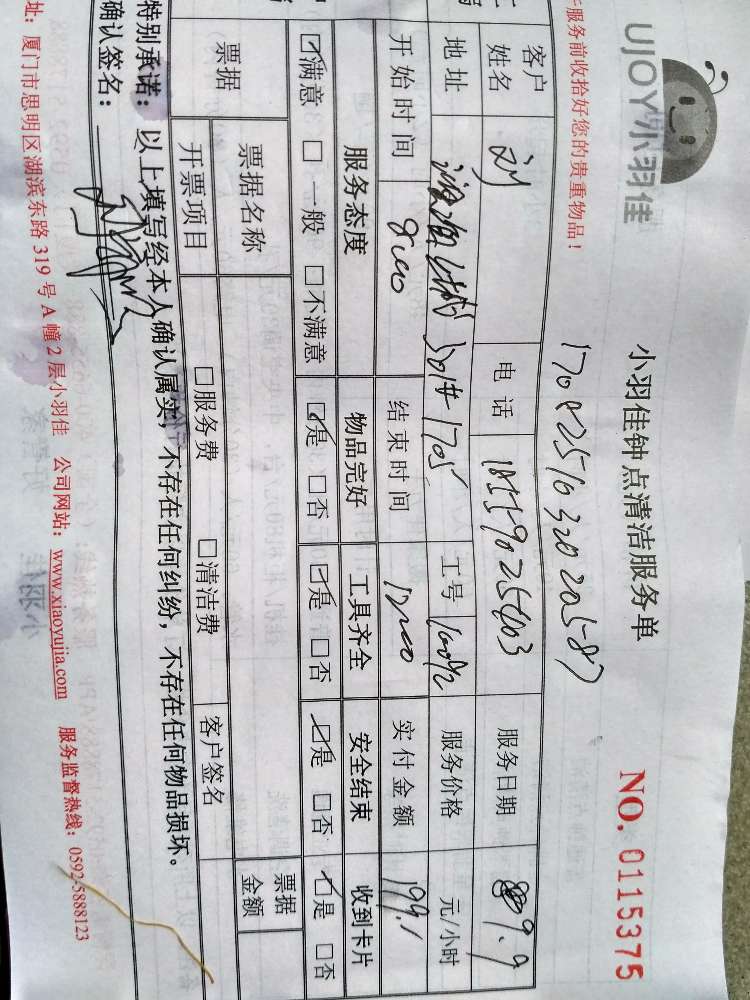 UJOY小羽佳
小羽佳钟点清洁服务单
NO. 0115375
服务前收拾好您的贵重物品！
客户姓名 刘 电话 18559025403 服务日期 9.9
地址 301# 1705 工号 服务价格 元/小时
开始时间 8:00 结束时间 12:00 实付金额 199.1
服务态度 物品完好 工具齐全 安全结束 收到卡片
☑满意 □一般 □不满意 ☑是 □否 ☑是 □否 ☑是 □否 ☑是 □否
票据 票据名称 票据金额
开票项目 □服务费 □清洁费 客户签名
特别承诺：以上填写经本人确认属实，不存在任何纠纷，不存在任何物品损坏。
确认签名：
址：厦门市思明区湖滨东路 319 号 A 幢 2 层小羽佳 公司网站：www.xiaoyujia.com 服务监督热线：0592-5888123